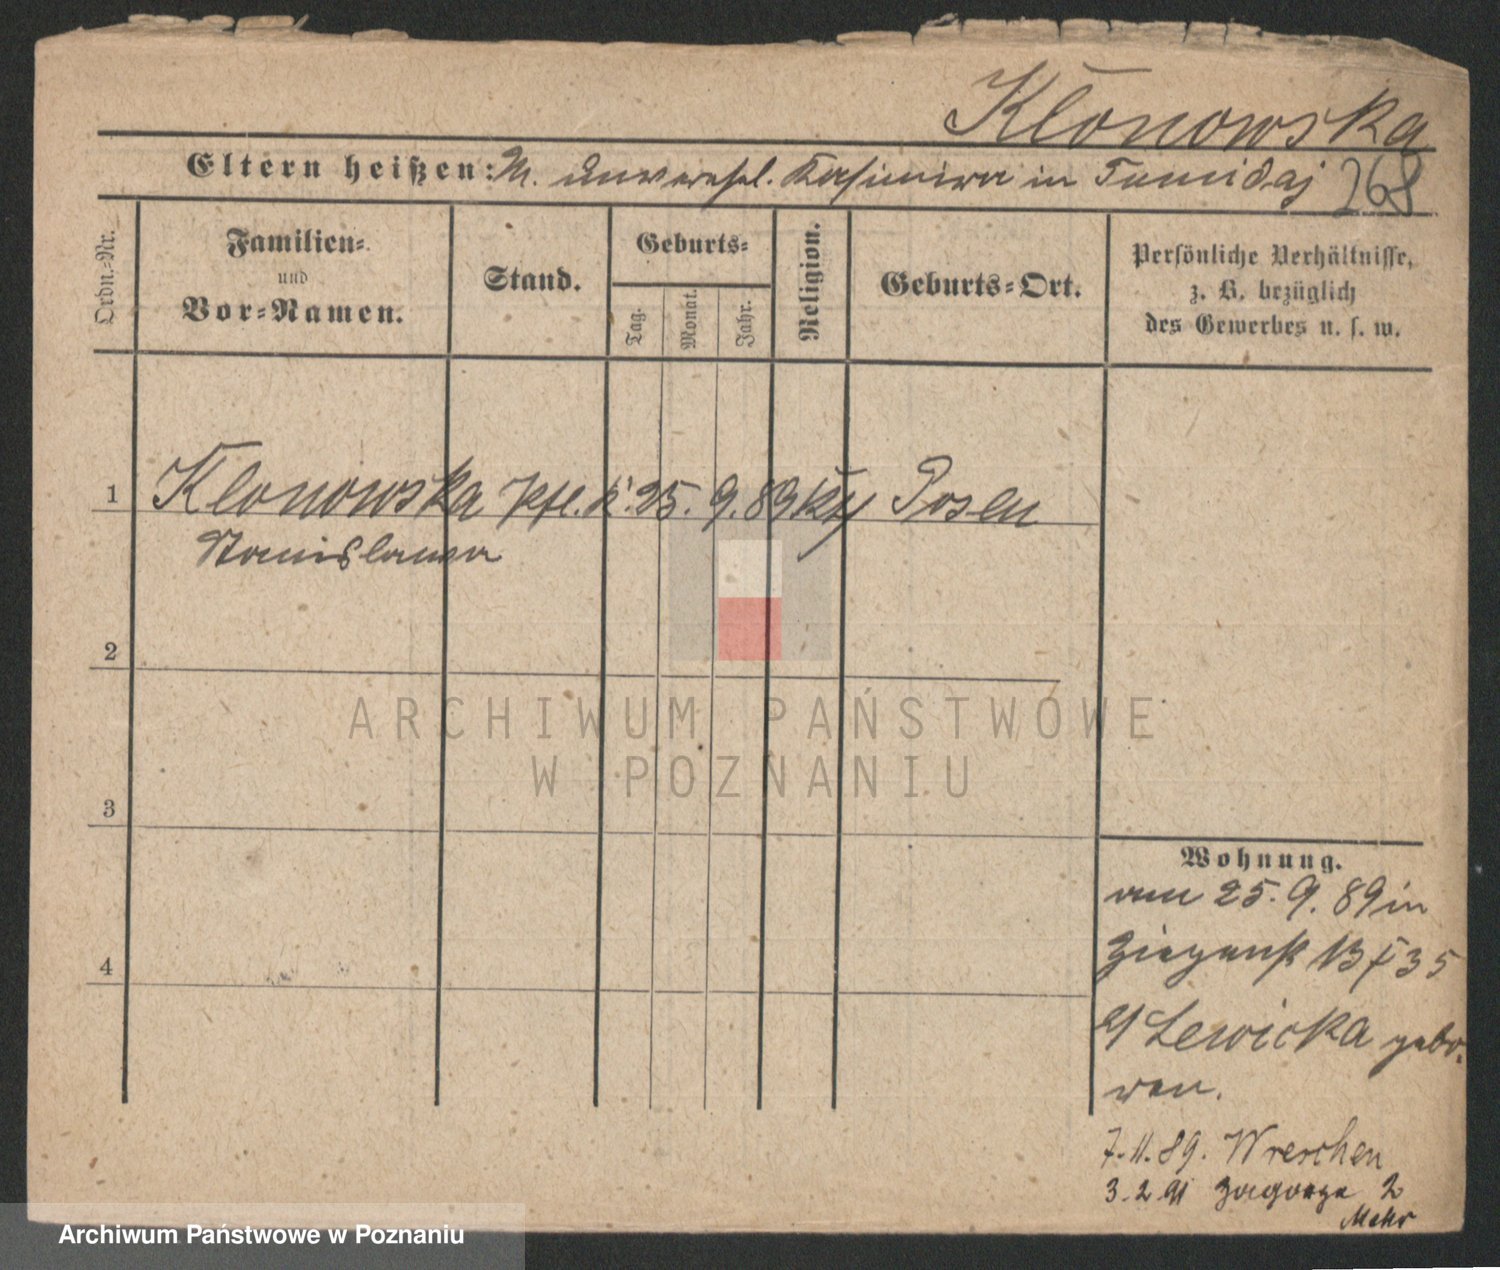 Klonowska
Eltern heißen: M. unverehel. Kasimira in Tumidaj 268
Ordn.-Nr.
Familien-
und
Vor-Namen.
Stand.
Geburts-
Tag.
Monat.
Jahr.
Religion.
Geburts-Ort.
Persönliche Verhältnisse,
z. B. bezüglich
des Gewerbes u. s. w.
1 Klonowska Pfl. K. 25. 9. 89 Posen
Stanislawa
2
3
4
ARCHIWUM PAŃSTWOWE
W POZNANIU
Wohnung.
am 25. 9. 89 in
Ziegenst 35
Lewicka gebo-
ren.
7. 11. 89. Wreschen
3. 2. 91 Zagorze 2
Mehr
Archiwum Państwowe w Poznaniu